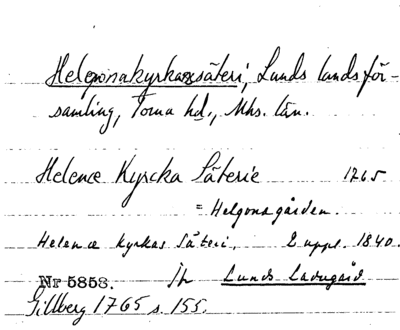 Helgonakyrkans säteri, Lunds lands för-
samling, Torna hd., Mhs. län.
Helence Kyrcka Säterie 1765
= Helgonagården.
Helence Kyrkas Säteri. 2 uppl. 1840.
Nr 5858. Lunds Ladugård
Gillberg 1765 s. 155.